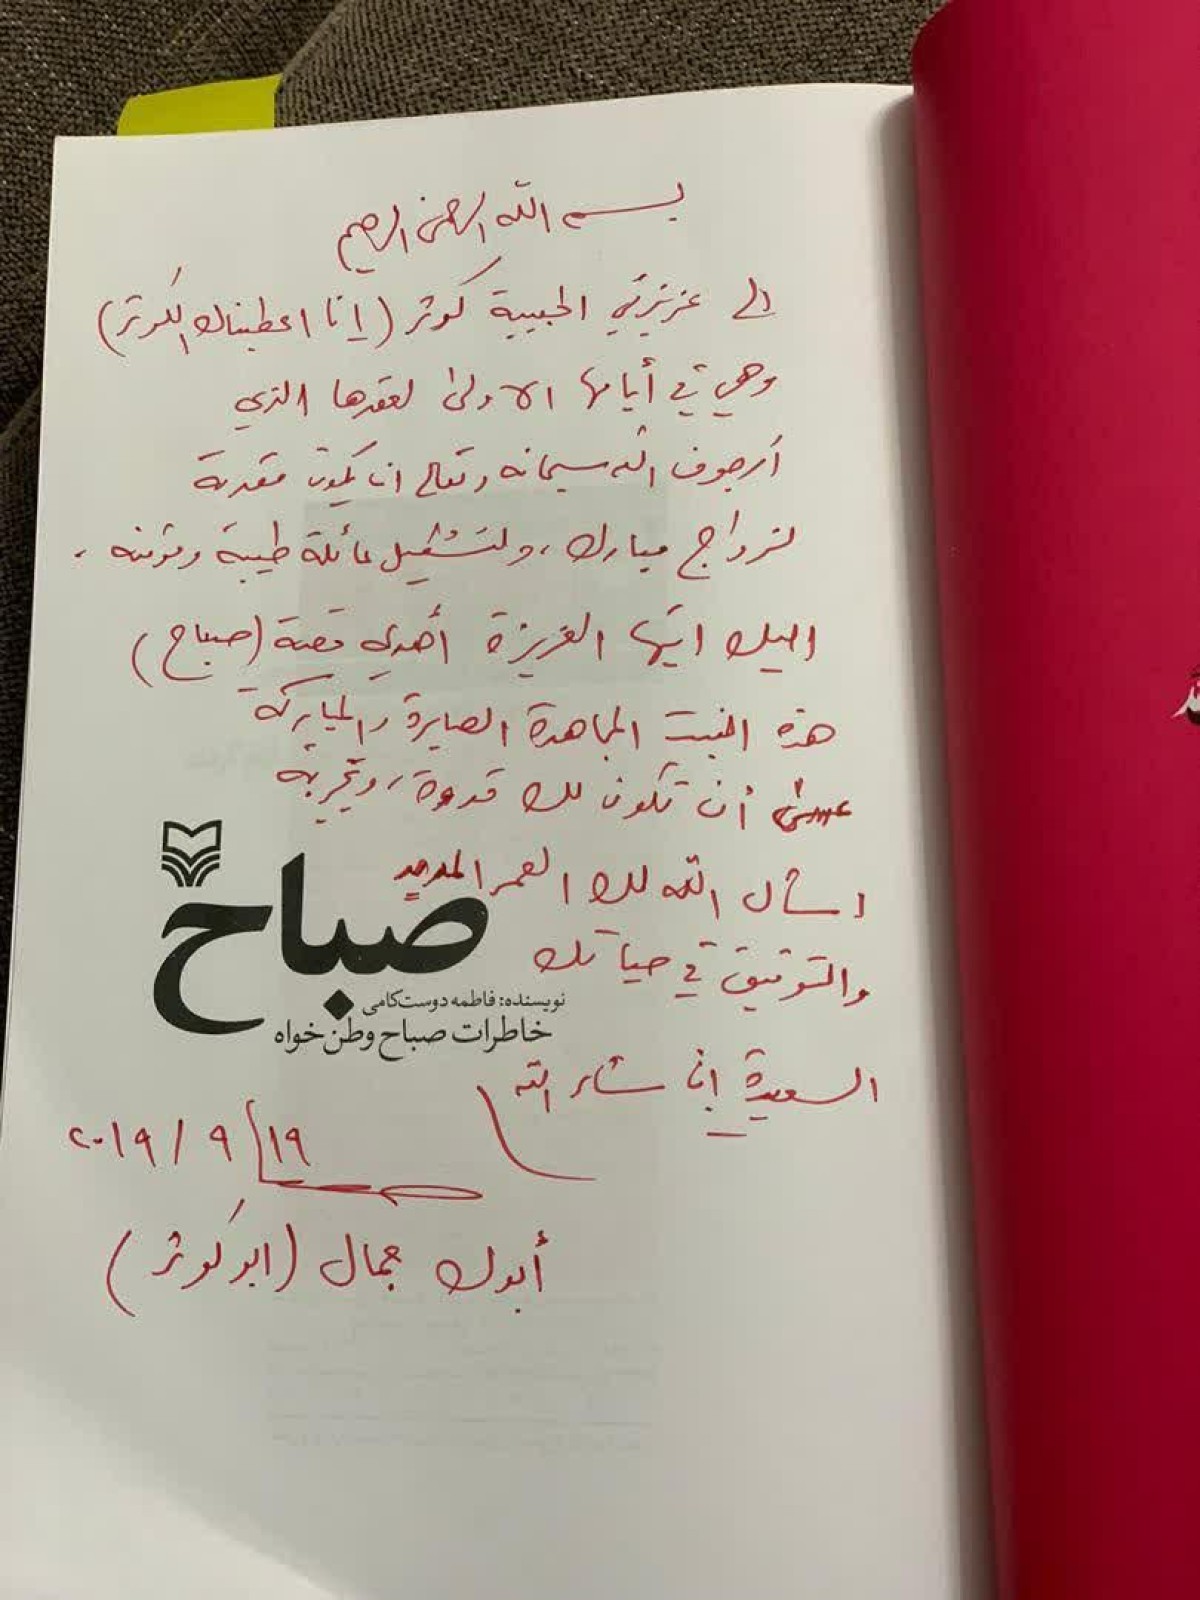 بسم الله الرحمن الرحيم
الى عزيزتي الحبيبة كوثر (إنا اعطيناك الكوثر)
وهي في أيامها الاولى لعقدها الذي
أرجو من الله سبحانه وتعالى ان يكون مقدمة
لزواج مبارك، ولتشكيل عائلة طيبة ومؤمنة،
اليك ايتها العزيزة أهدي قصة (صباح)
هذه البنت المجاهدة الصابرة والمباركة
عسى أن تكون لك قدوة، وتجربة
اسأل الله لك العمر المديد
والتوفيق في حياتك
السعيدة إن شاء الله
١٩/٩/٢٠١٩
أبوك جمال (ابو كوثر)
صباح
نویسنده: فاطمه دوست‌کامی
خاطرات صباح وطن‌خواه